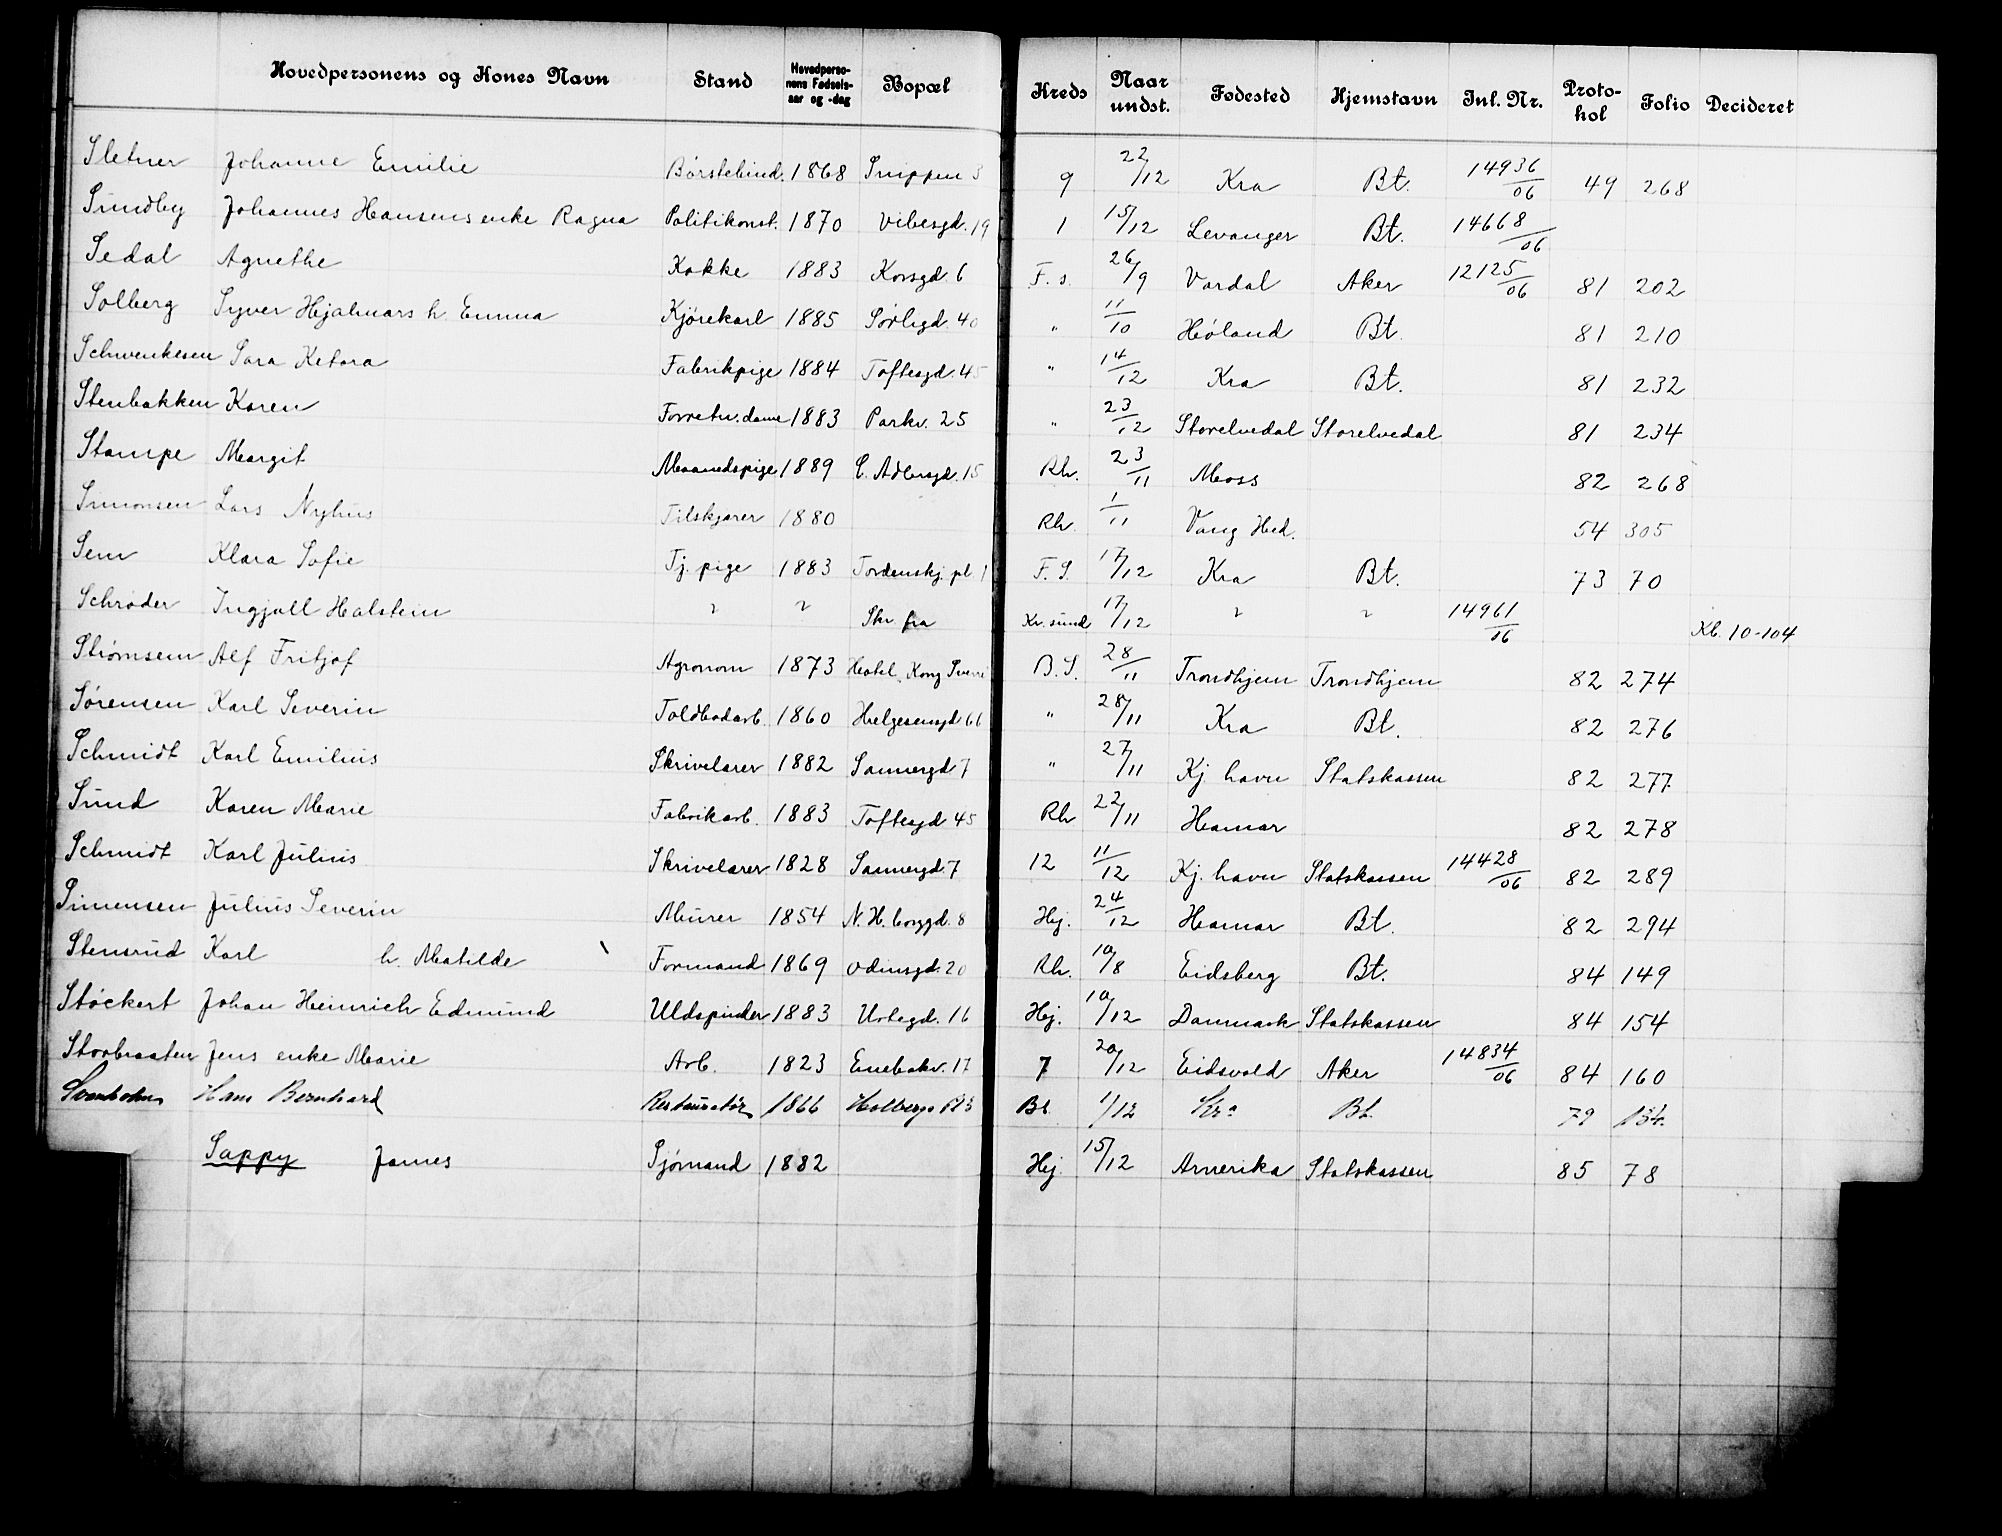 Hovedpersonens og Kones Navn Stand Hovedpersonens Fødselsaar og -dag Bopæl Kreds Naar undst. Fødested Hjemstavn Inl. Nr. Protokol Folio Decideret
Sletner Johanne Emilie Børstebind. 1868 Snippen 3 9 22/12 Kra Bt. 14936/06 49 268
Sundby Johannes Hansens enke Ragna Politikonst. 1870 Vibesgd. 19 1 15/12 Levanger Bt. 14668/06
Sedal Agnethe Kokke 1883 Korsgd. 6 F. s. 26/9 Vardal Aker 12125/06 81 202
Solberg Syver Hjalmars h. Emma Kjørekarl 1885 Sørligd. 40 " 11/10 Høland Bt. 81 210
Schwenkesen Sara Ketora Fabrikpige 1884 Toftesgd. 45 " 14/12 Kra Bt. 81 232
Stenbakken Karen Forretn. dame 1883 Parkv. 25 " 23/12 Storelvedal Storelvedal 81 234
Stampe Margit Maanedspige 1889 C. Adlersgd. 15 Rh. 23/11 Moss 82 268
Simonsen Lars Nyhus Tilskjærer 1880 Rh. 1/11 Vang Hed. 54 305
Sem Klara Sofie Tj. pige 1883 Tordenskj. pl 1 F. S. 17/12 Kra Bt. 73 70
Schrøder Ingjall Halstein ? ? Skr. fra Kr. sund 17/12 ? ? 14961/06 Kl. 10-104
Strømsem Alf Fritjof Agronom 1873 Hotel Kong Sverre B. S. 28/11 Trondhjem Trondhjem 82 274
Sørensen Karl Severin Toldbodarb. 1860 Helgesensgd 66 " 28/11 Kra Bt. 82 276
Schmidt Karl Emilius Skrivelærer 1882 Sannergd 7 " 27/11 Kj. havn Statskassen 82 277
Sund Karen Marie Fabrikarb. 1883 Toftesgd 45 Rh 22/11 Hamar 82 278
Schmidt Karl Julius Skrivelærer 1828 Sannergd. 7 12 11/12 Kj. havn Statskassen 14428/06 82 289
Simensen Julius Severin Murer 1854 N. H. borggd. 8 Hej. 24/12 Hamar Bt. 82 294
Stensrud Karl h. Matilde Formand 1869 Odinsgd. 20 Rh. 10/8 Eidsberg Bt. 84 149
Støckert Johan Heinrich Edmund Uldspinder 1883 Urtegd. 16 Hej. 10/12 Danmark Statskassen 84 154
Storbraaten Jens enke Marie Arb. 1823 Enebakv. 17 7 20/12 Eidsvold Aker 14834/06 84 160
Svenholm Hans Bernhard Restauratør 1866 Holbergs Pl 3 Bt. 1/12 Kra Bt. 79 134.
Sappy James Sjømand 1882 Hej 15/12 Amerika Statskassen 85 78